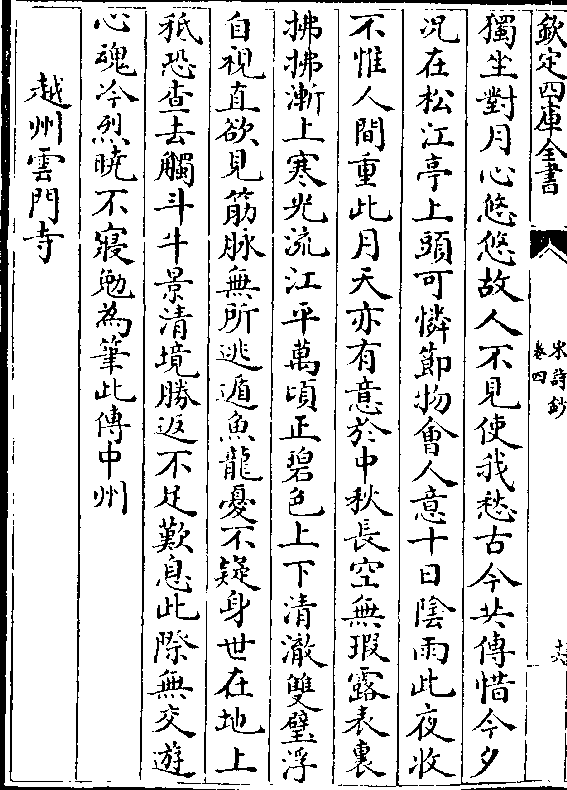 欽定四庫全書
宋詩鈔
卷四
獨坐對月心悠悠故人不見使我愁古今共傳惜今夕
况在松江亭上頭可憐節物會人意十日陰雨此夜收
不惟人間重此月天亦有意於中秋長空無瑕露表裏
拂拂漸上寒光流江平萬頃正碧色上下清澈雙璧浮
自視直欲見筋脉無所逃遁魚龍憂不疑身世在地上
秖恐查去觸斗牛景清境勝返不足歎息此際無交遊
心魂冷烈曉不寢勉為筆此傳中州
越州雲門寺